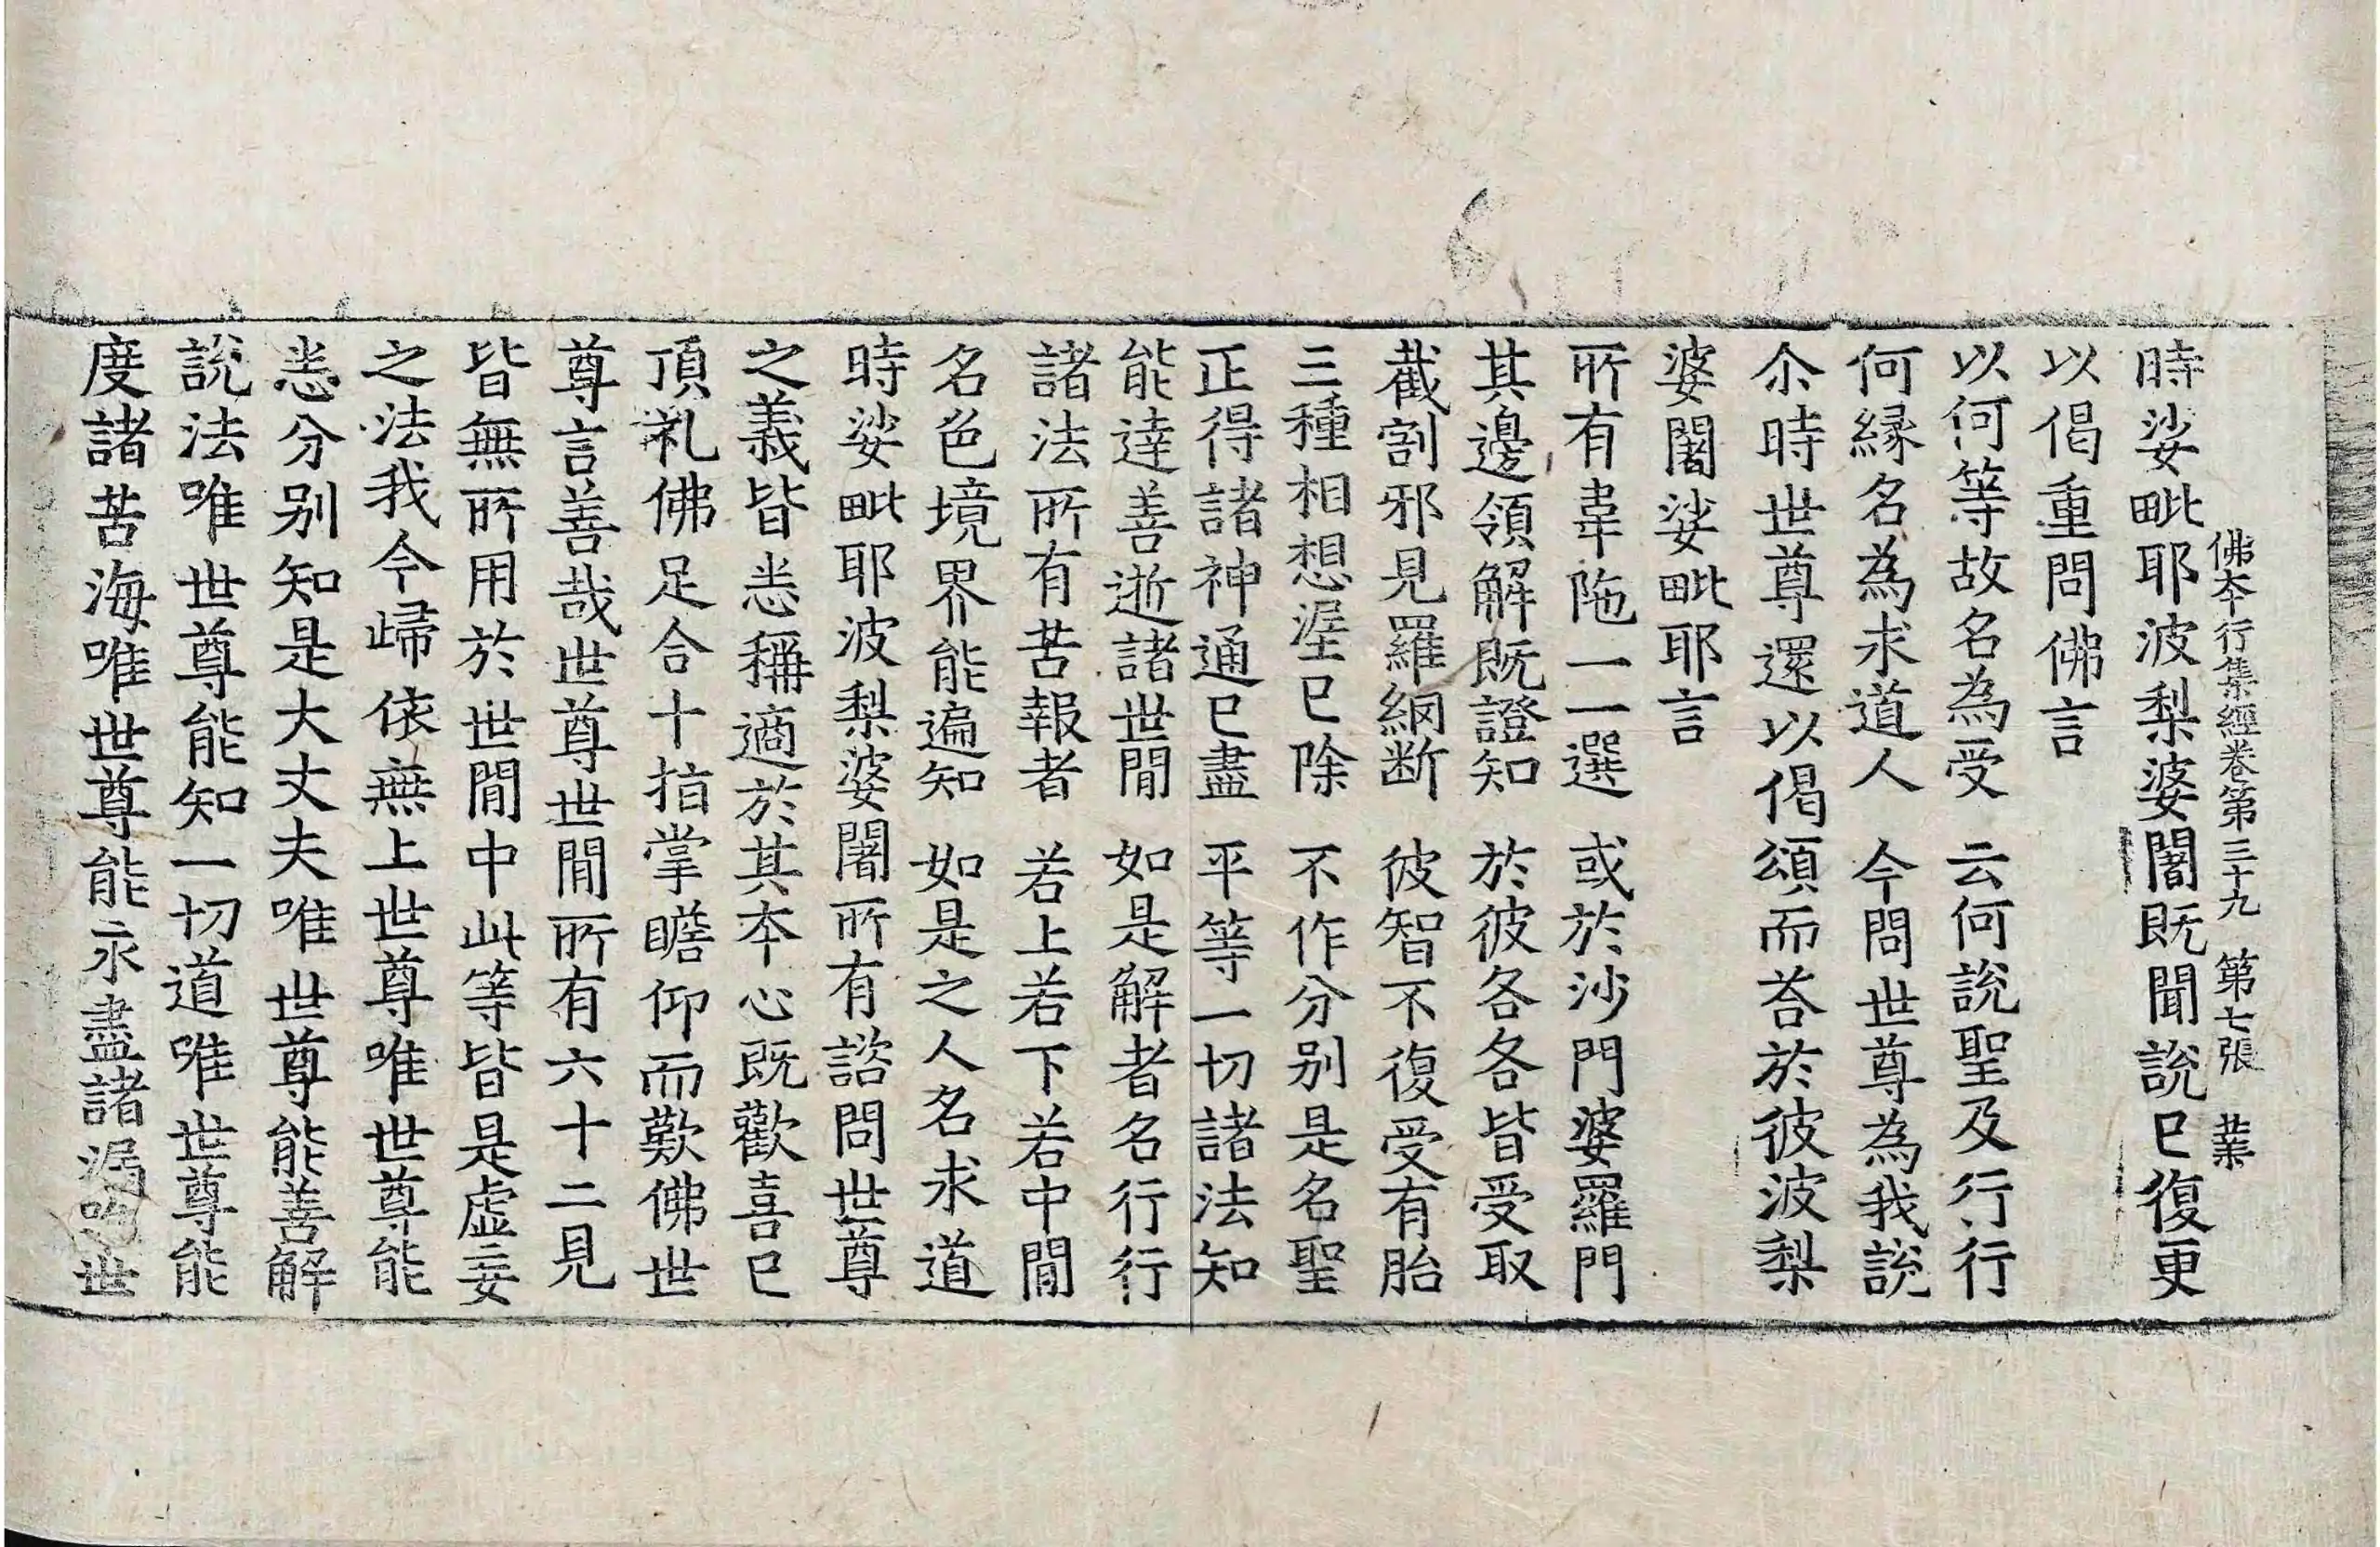 佛本行集經卷第三十九　第七張　業
時娑毗耶波梨婆闍既聞說已復更
以偈重問佛言
以何等故名為受　云何說聖及行行
何縁名為求道人　今問世尊為我說
尒時世尊還以偈頌而荅於彼波梨
婆闍娑毗耶言
所有韋陁一一選　或於沙門婆羅門
其邊領解既證知　於彼各各皆受取
截割邪見羅網断　彼智不復受有胎
三種相想渥已除　不作分別是名聖
正得諸神通已盡　平等一切諸法知
能達善逝諸世間　如是解者名行行
諸法所有苦報者　若上若下若中間
名色境界能遍知　如是之人名求道
時娑毗耶波梨婆闍所有諮問世尊
之義皆悉稱適於其本心既歡喜已
頂礼佛足合十指掌瞻仰而歎佛世
尊言善哉世尊世間所有六十二見
皆無所用於世間中此等皆是虛妄
之法我今歸依無上世尊唯世尊能
悉分别知是大丈夫唯世尊能善解
說法唯世尊能知一切道唯世尊能
度諸苦海唯世尊能永盡諸漏唯世